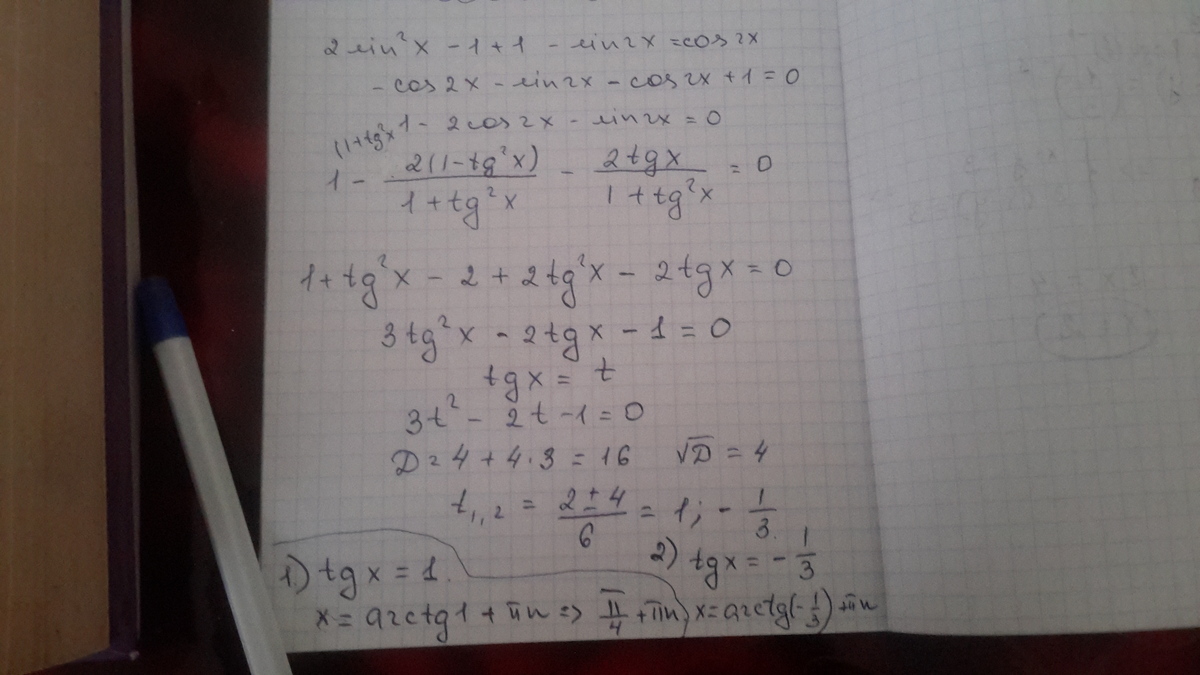 2 sin²x - 1 + 1 - sin2x = cos2x
- cos2x - sin2x - cos2x + 1 = 0
1 - 2cos2x - sin2x = 0
(1+tg²x
1 - 2(1-tg²x)/(1+tg²x) - 2tgx/(1+tg²x) = 0
1 + tg²x - 2 + 2tg²x - 2tgx = 0
3tg²x - 2tgx - 1 = 0
tgx = t
3t² - 2t - 1 = 0
D = 4 + 4·3 = 16 √D = 4
t₁,₂ = (2±4)/6 = 1; - 1/3
1) tgx = 1. 2) tgx = - 1/3
x = arctg1 + πn => π/4 + πn, x = arctg(-1/3) + πn